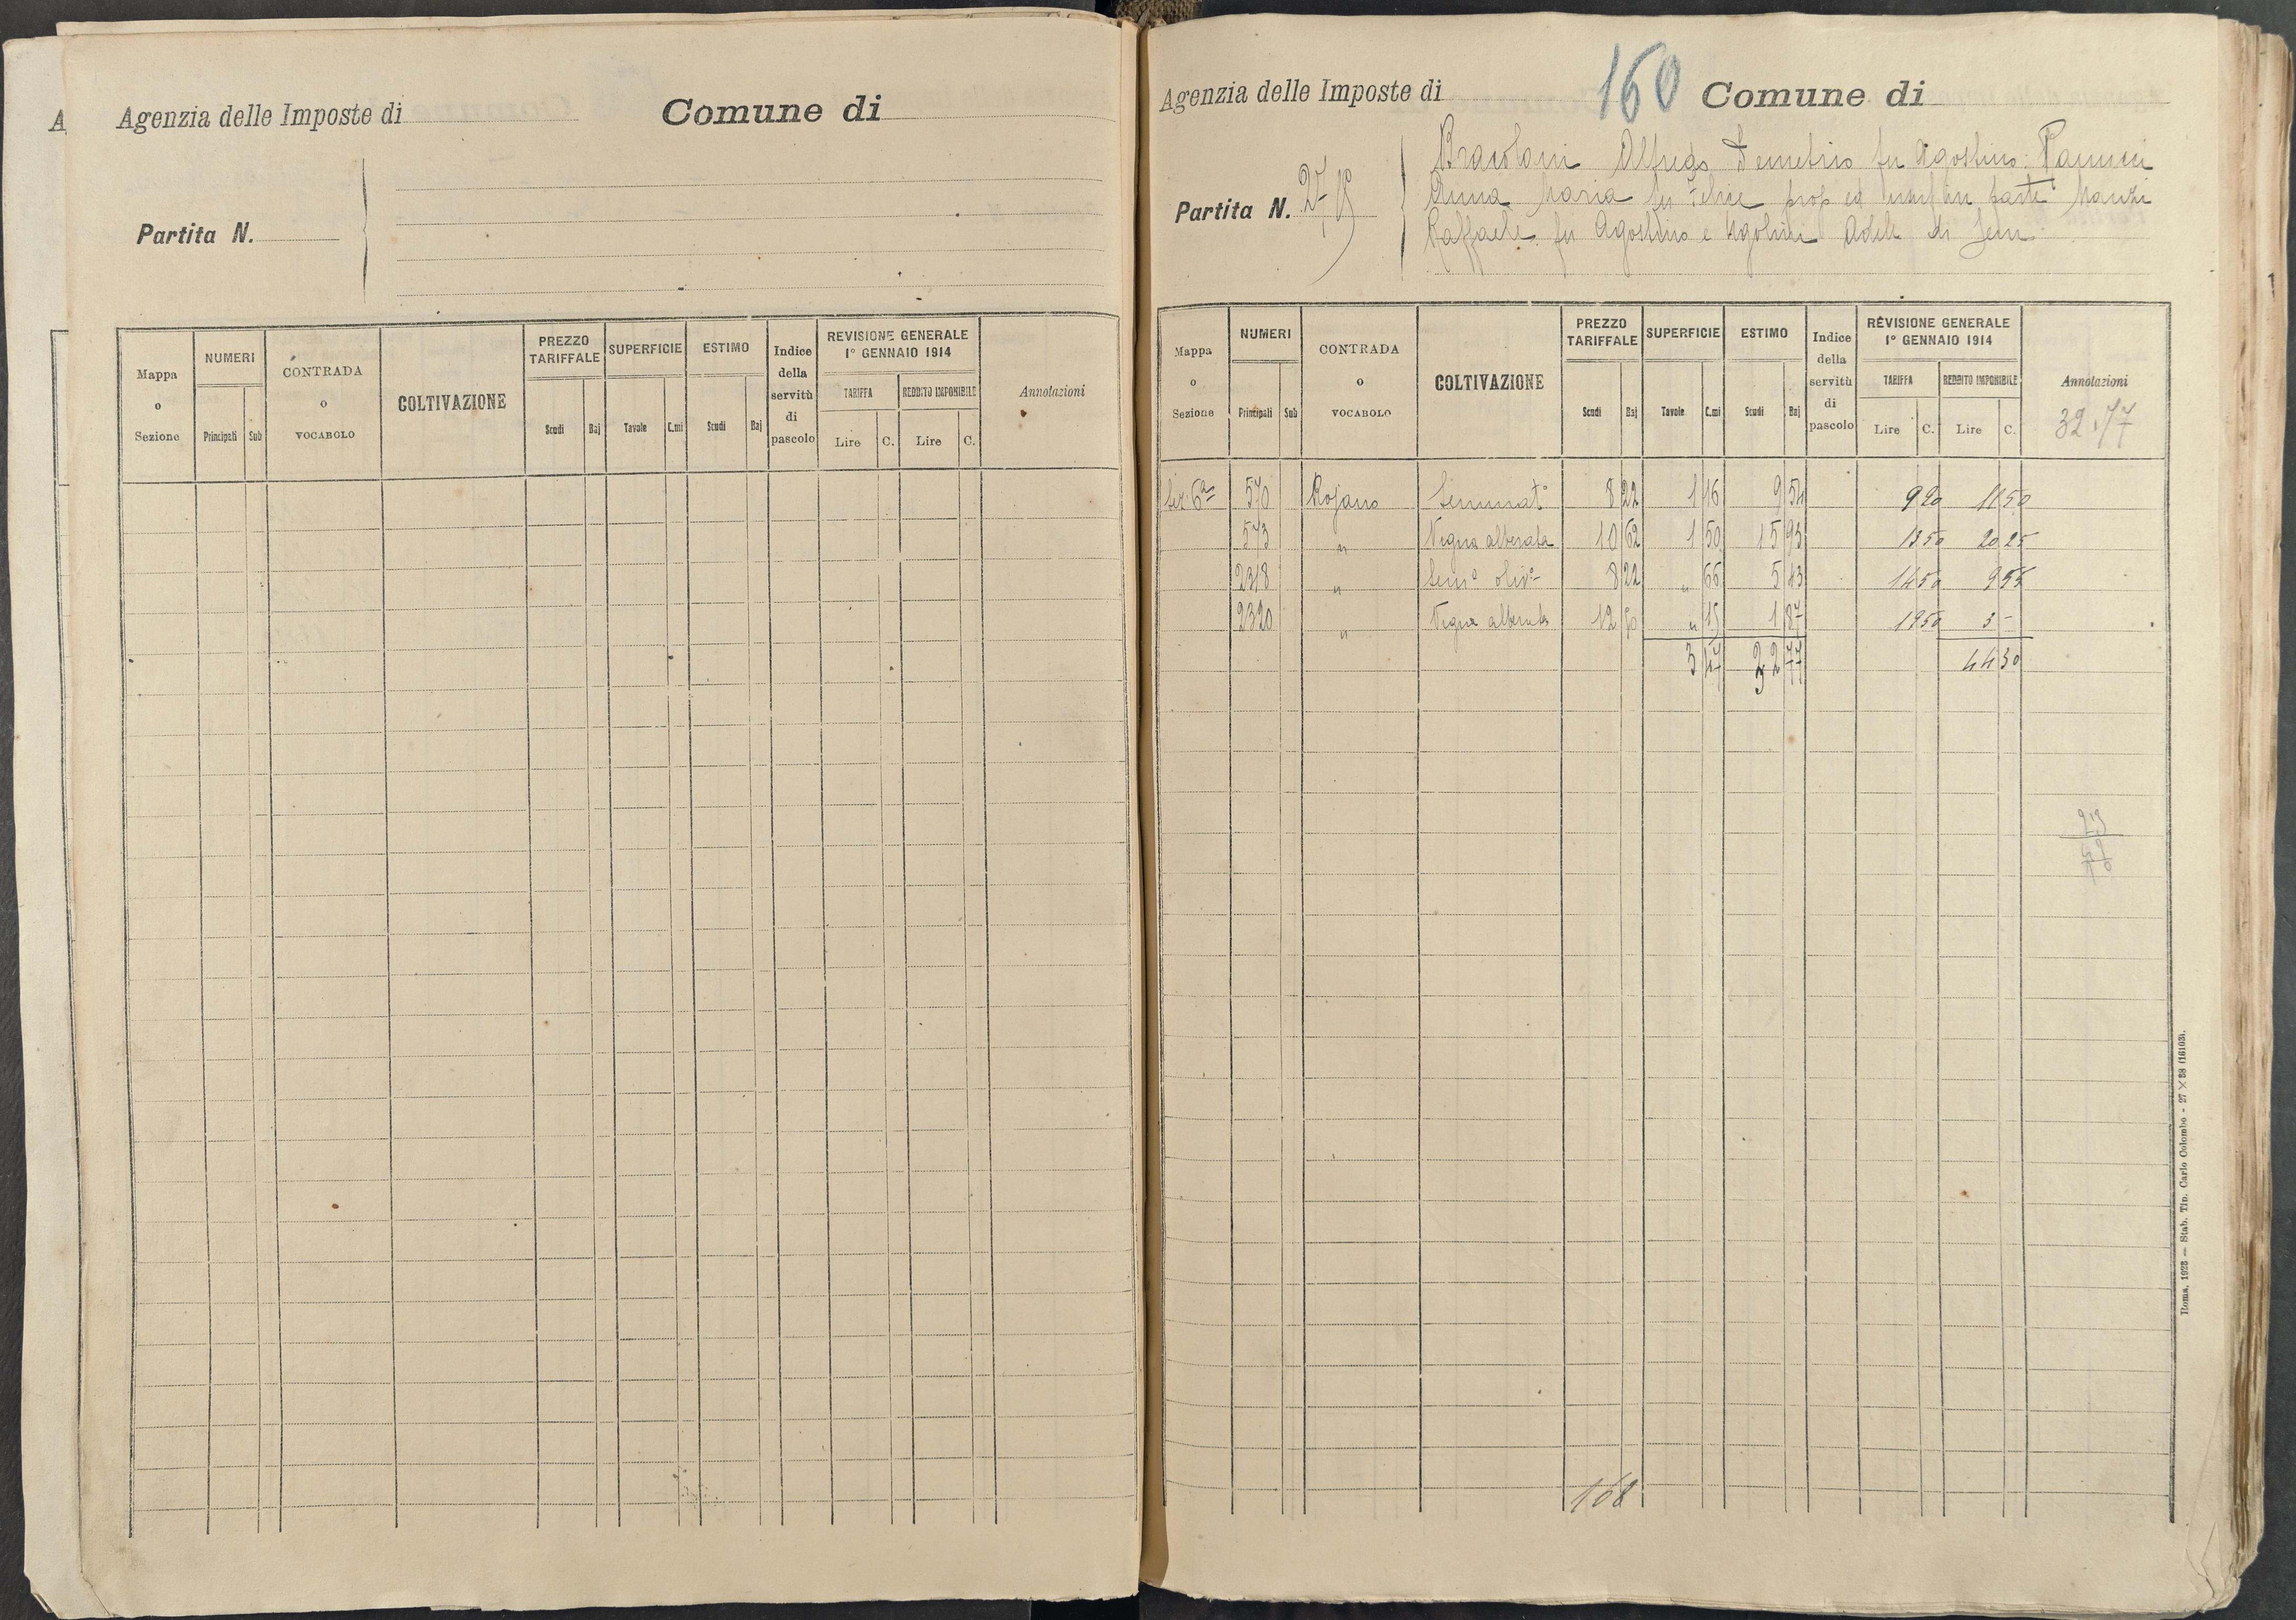 A
Agenzia delle Imposte di Comune di
Partita N.
Mappa o Sezione NUMERI Principali Sub CONTRADA o VOCABOLO COLTIVAZIONE PREZZO TARIFFALE Scudi Baj SUPERFICIE Tavole C.mi ESTIMO Scudi Baj Indice della servitù di pascolo REVISIONE GENERALE 1° GENNAIO 1914 TARIFFA Lire C. REDDITO IMPONIBILE Lire C. Annotazioni
160
Agenzia delle Imposte di Comune di
Alfredo Demetrio fu Agostino
Partita N.
Anna Maria fu Felice prop ed in parte
Raffaele fu Agostino e Ugolini Adele di
Mappa o Sezione NUMERI Principali Sub CONTRADA o VOCABOLO COLTIVAZIONE PREZZO TARIFFALE Scudi Baj SUPERFICIE Tavole C.mi ESTIMO Scudi Baj Indice della servitù di pascolo REVISIONE GENERALE 1° GENNAIO 1914 TARIFFA Lire C. REDDITO IMPONIBILE Lire C. Annotazioni
32.77
Sez. 6a 570 Rojano Seminato 8 22 1 16 9 54 9 20 11 50
573 " Vigna alberata 10 62 1 50 15 93 13 50 20 25
2318 " Sem° oliv° 8 22 " 66 5 43 14 50 9 55
2320 " Vigna alberata 12 50 " 15 1 87 19 50 3 -
3 47 32 77 44 30
168
Roma, 1923 — Stab. Tip. Carlo Colombo - 27 × 38 (16103).